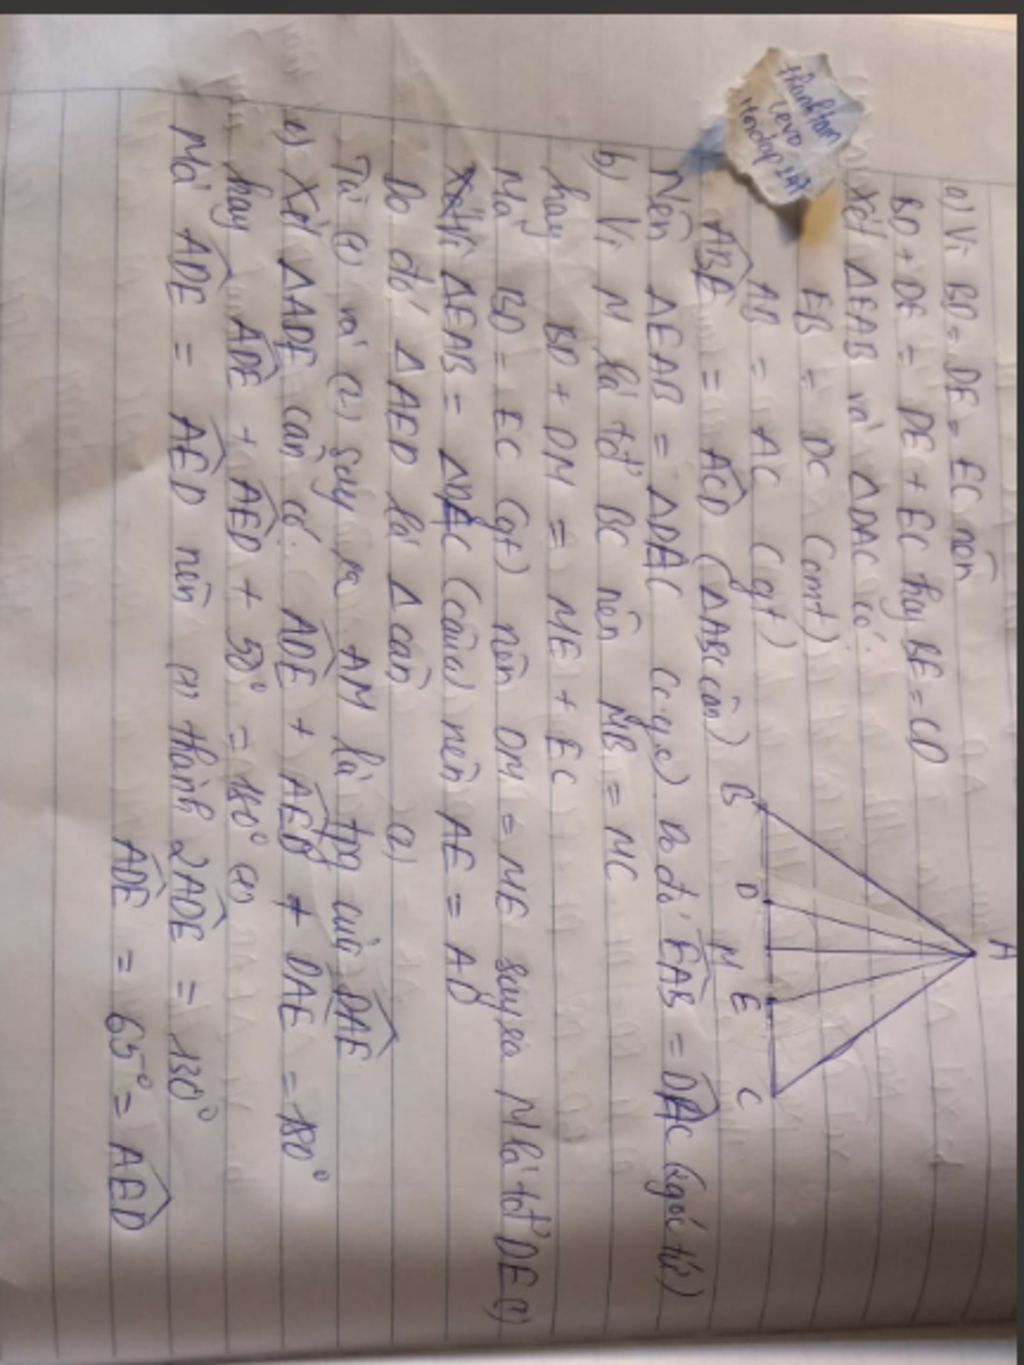 a) Vì BD = DE = EC nên
BD + DE = DE + EC hay BE = CD
Xét ΔEAB và ΔDAC có:
EB = DC (cmt)
AB = AC (gt)
ABE = ACD (ΔABC cân)
Nên ΔEAB = ΔDAC (c.g.c) Do đó EAB = DAC (2góc tứ)
b) Vì M là tđ BC nên MB = MC
hay BD + DM = ME + EC
Mà BD = EC (gt) nên DM = ME suy ra M là tđ DE (1)
Vì ΔEAB = ΔDAC (câu a) nên AE = AD
Do đó ΔAED là Δ cân (2)
Từ (1) và (2) suy ra AM là tpg của DAE
c) Xét ΔADE cân có: ADE + AED + DAE = 180°
hay ADE + AED + 50° = 180° (1)
Mà ADE = AED nên (1) thành 2ADE = 130°
ADE = 65° = AED
A
B
D
M
E
C
thanhtam
Hoidap 247